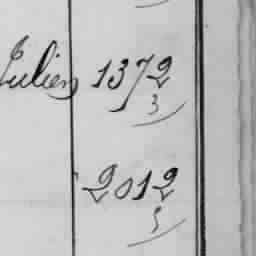 Julien 1372
3
2012
3